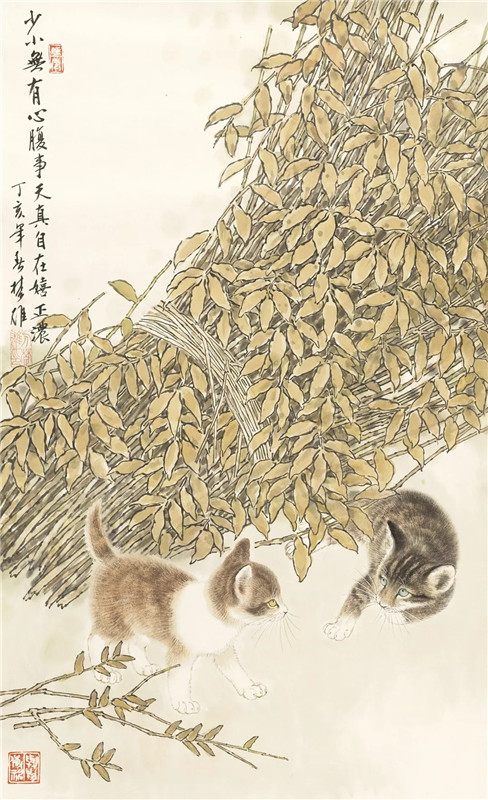 少小無有心腹事天真自在嬉正濃
丁亥年春楚雄